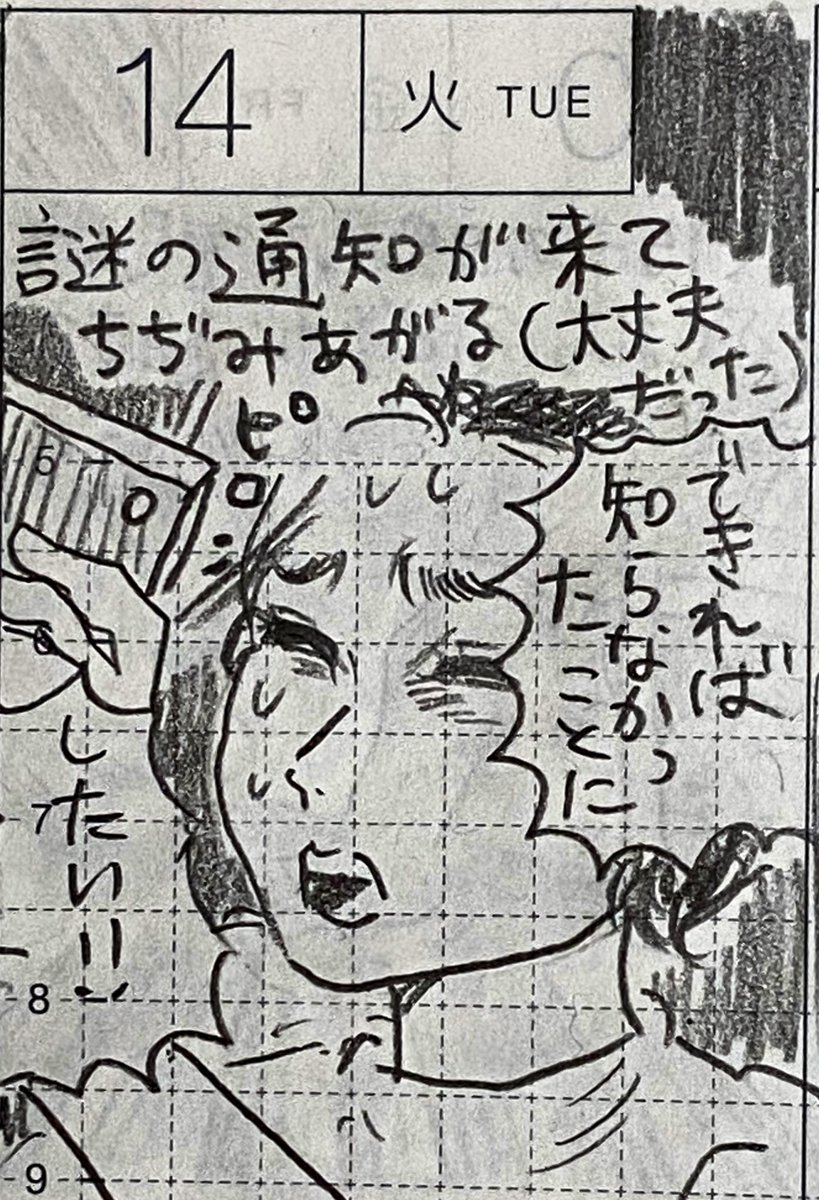 14
火 TUE
謎の通知が来て
ちぢみあがる(大丈夫
だった)
ピロン
できれば
知らなかっ
たことに
したい!!
5
6
7
8
9